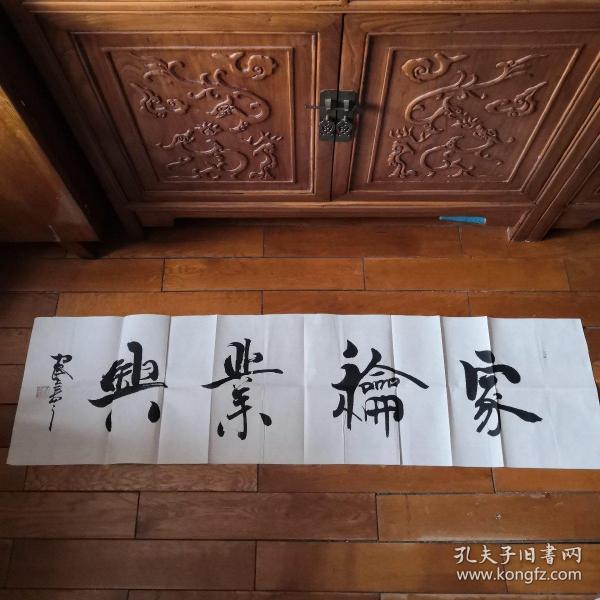 家龢業興
孔夫子旧書网
www.kongfz.com